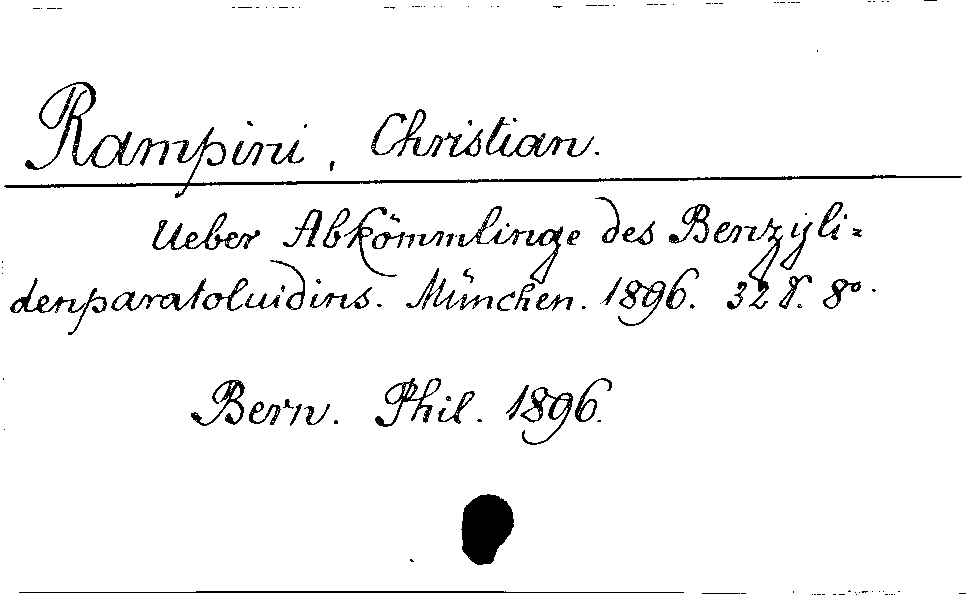 Rampini, Christian.
Ueber Abkömmlinge des Benzyli=
denparatoluidins. München. 1896. 32 S. 8°.
Bern. Phil. 1896.